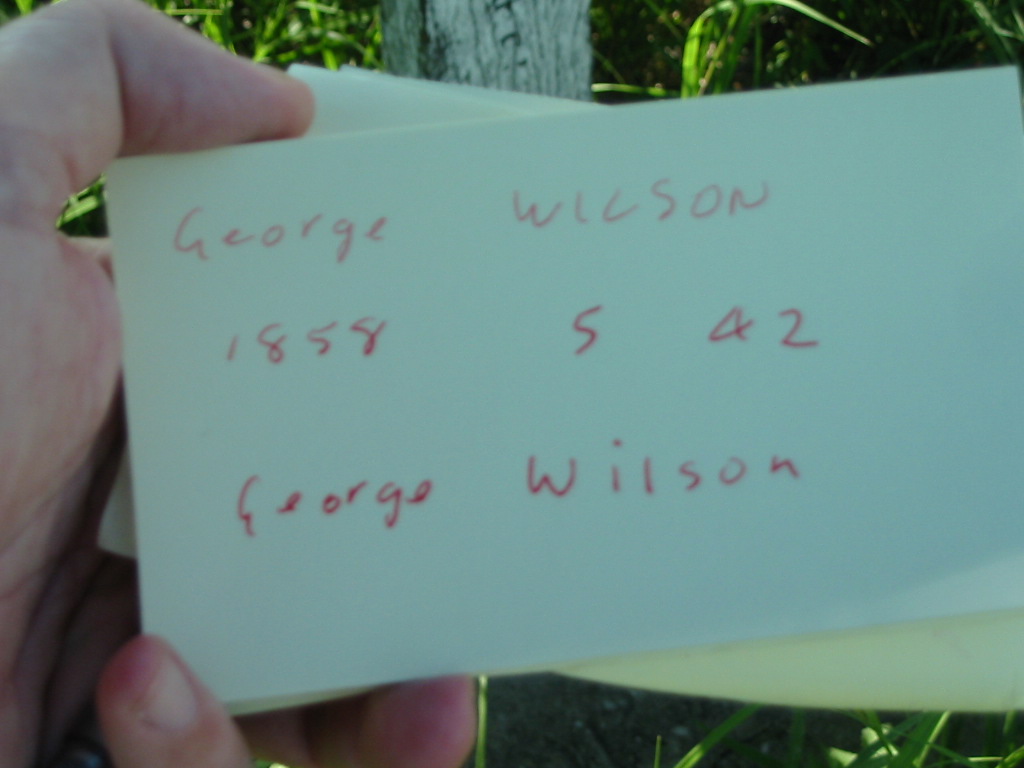 George WILSON
1858 5 42
George Wilson